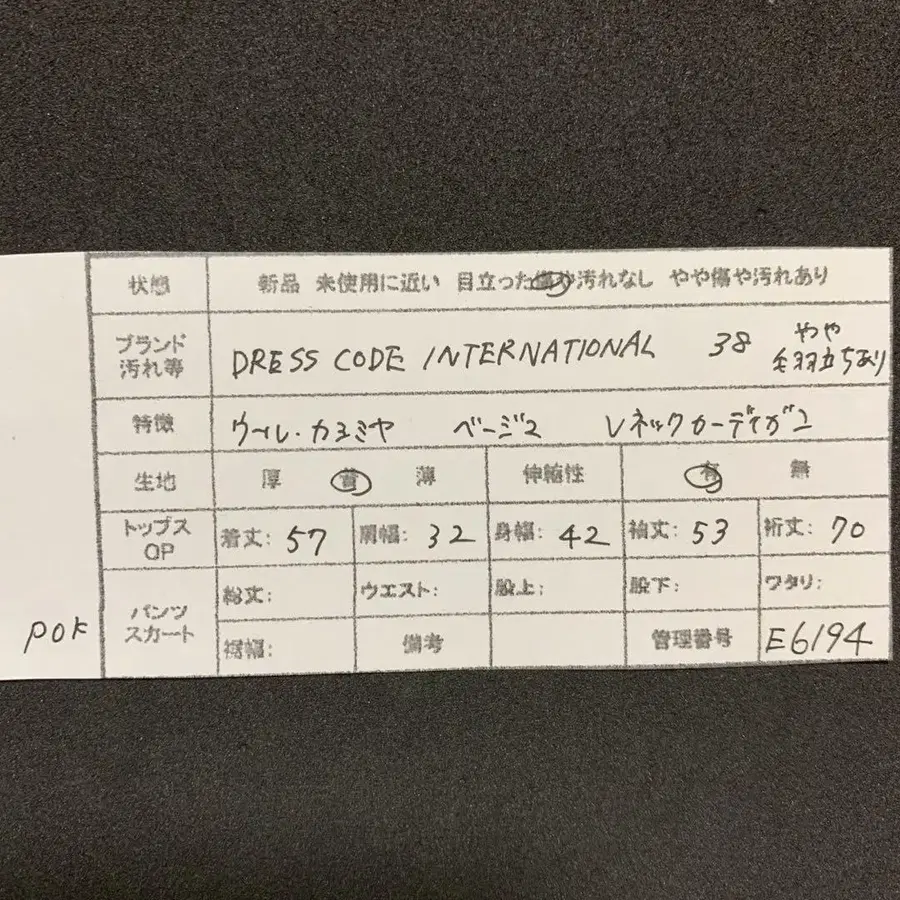 状態 新品 未使用に近い 目立った傷や汚れなし やや傷や汚れあり
ブランド
汚れ等
DRESS CODE INTERNATIONAL 38
やや
毛羽立ちあり
特徴 ウール・カシミヤ ベージュ Vネックカーディガン
生地 厚 普 薄 伸縮性 有 無
トップス
OP
着丈: 57 肩幅: 32 身幅: 42 袖丈: 53 裄丈: 70
パンツ
スカート
総丈: ウエスト: 股上: 股下: ワタリ:
裾幅: 備考 管理番号 E6194